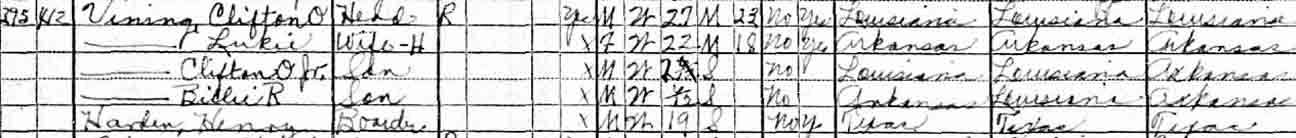 275 412 Vining, Clifton O Head R Yes M W 27 M 23 No Yes Louisiana Louisiana Louisiana
Lukie Wife-H X F W 22 M 18 No Yes Arkansas Arkansas Arkansas
Clifton O Jr. Son X M W S No Louisiana Louisiana Arkansas
Billie R Son X M W S No Arkansas Louisiana Arkansas
Harden, Henry Boarder X M W 19 S No Y Texas Texas Texas